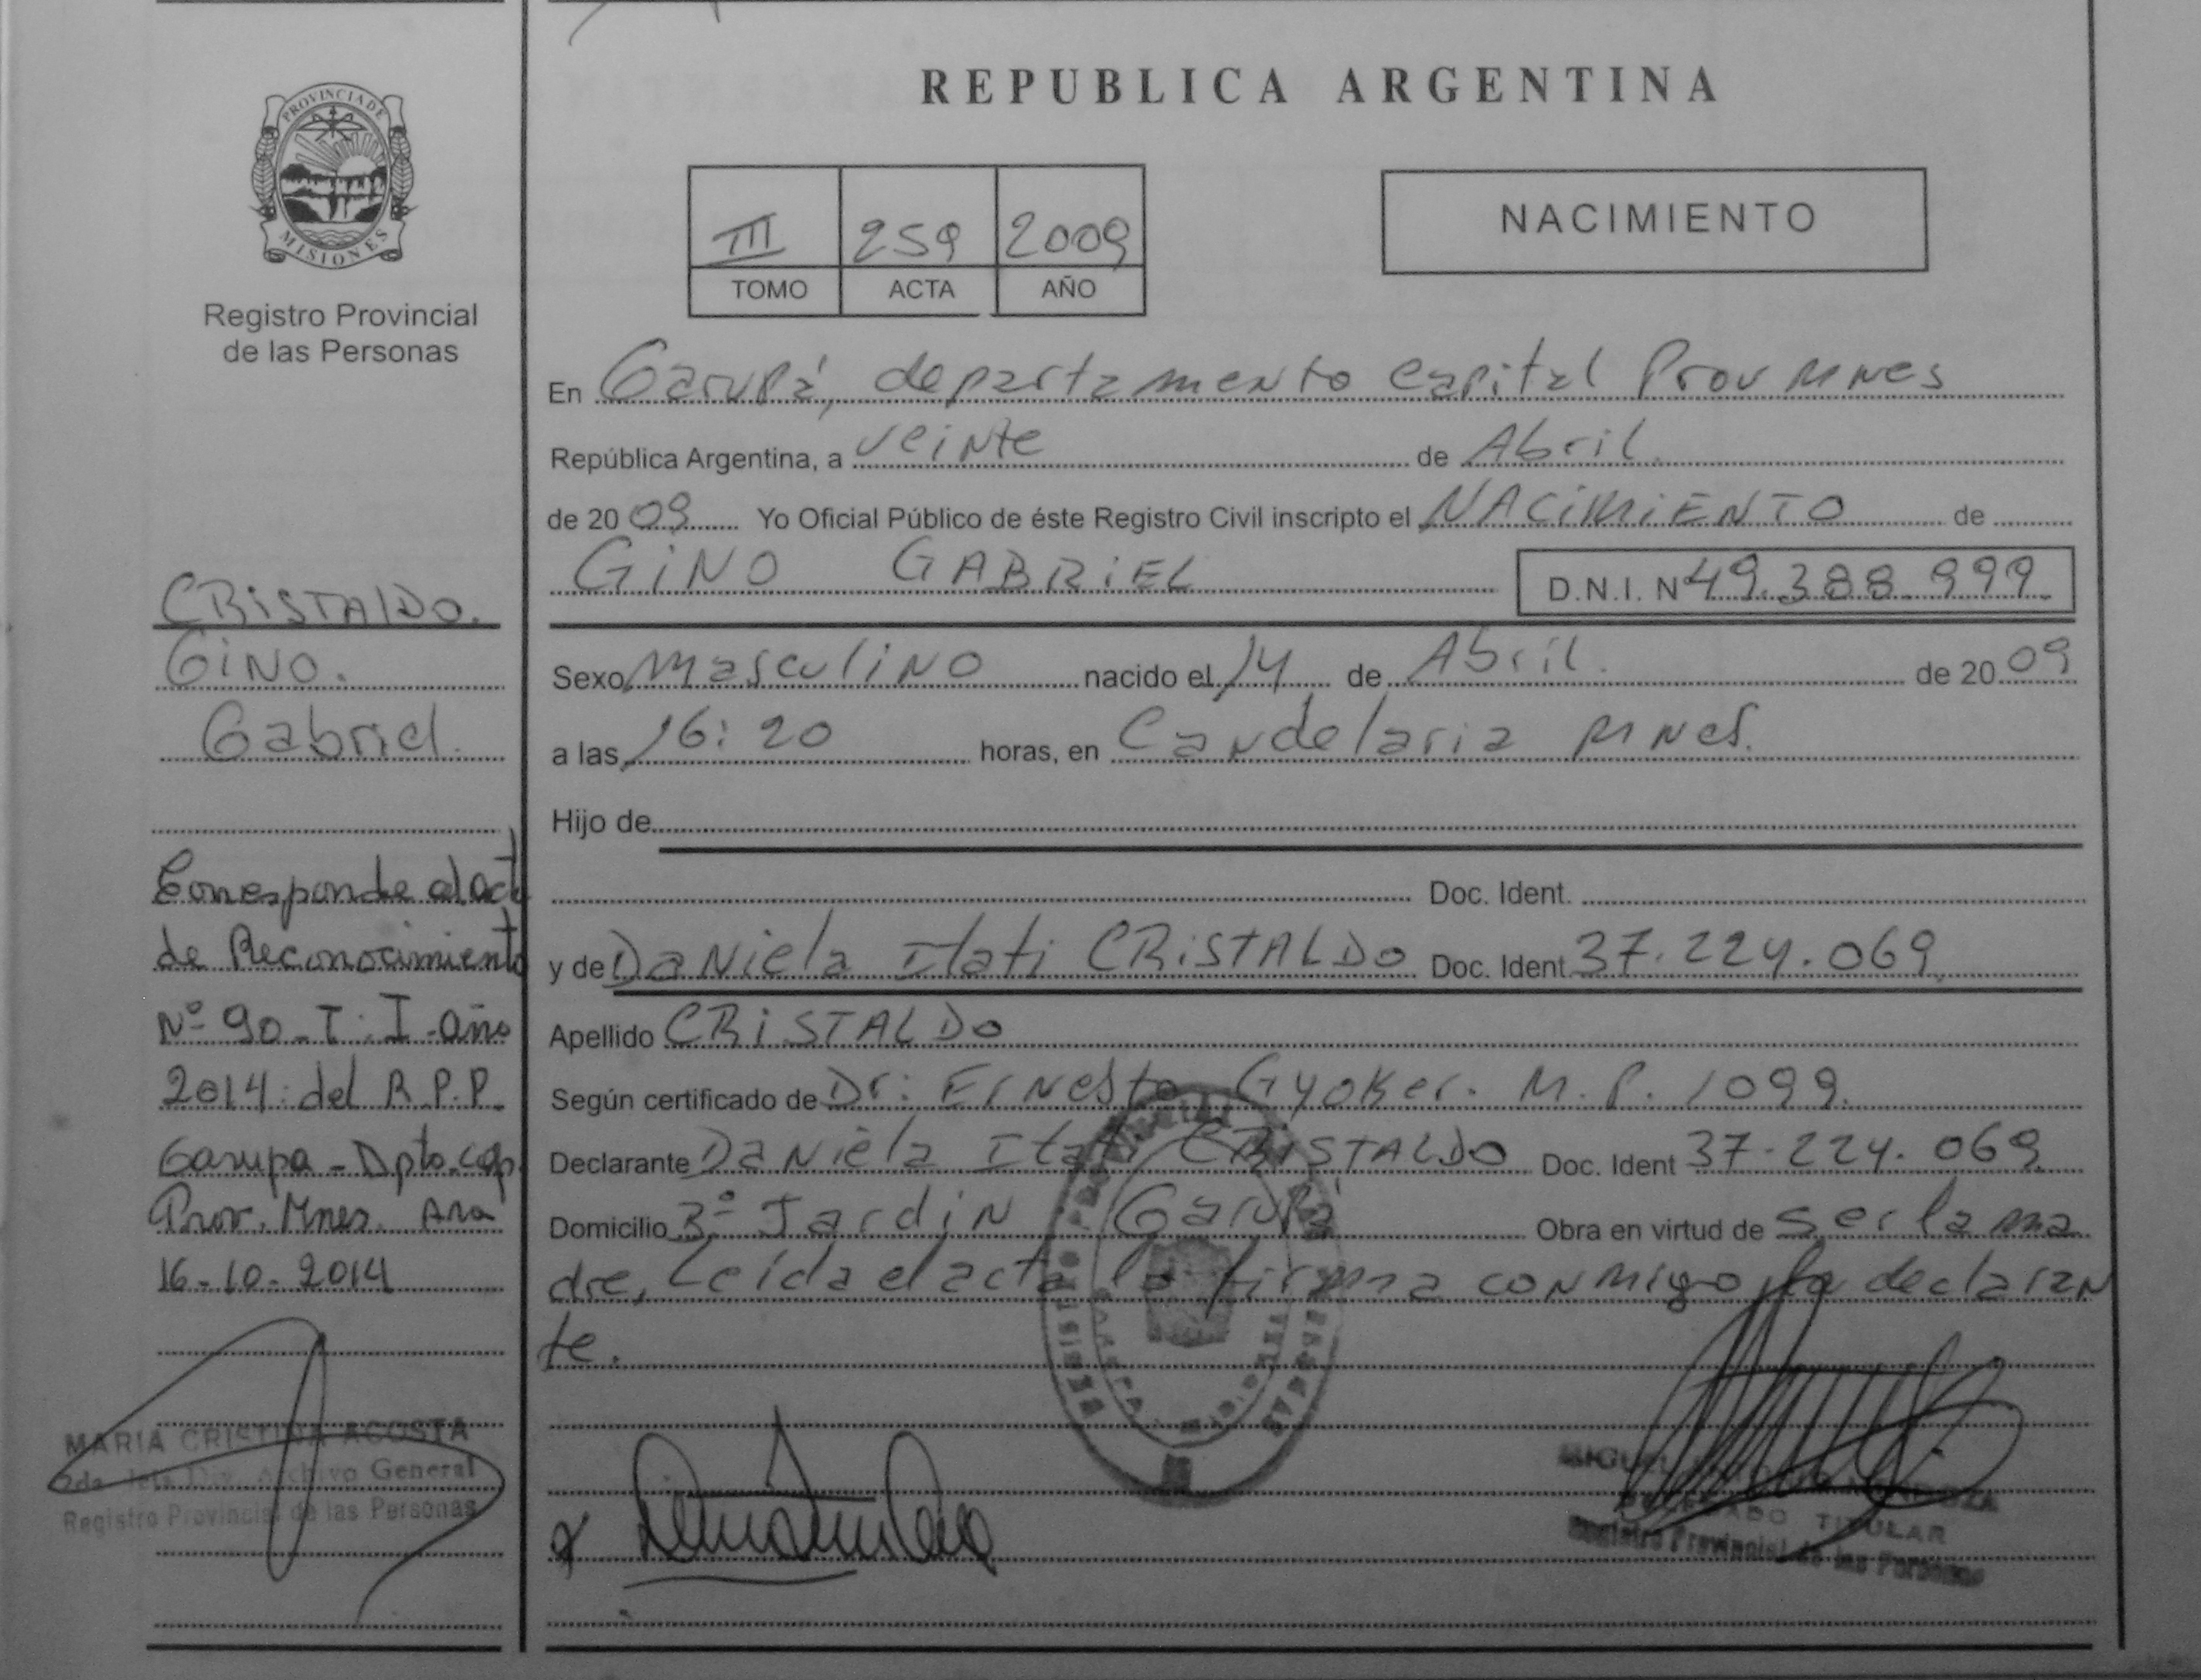 REPUBLICA ARGENTINA
PROVINCIA DE
MISIONES
Registro Provincial
de las Personas
III 259 2009
TOMO ACTA AÑO
NACIMIENTO
En Garupá, departamento capital Prov Mnes
República Argentina, a veinte de Abril.
de 2009 Yo Oficial Público de éste Registro Civil inscripto el NACIMIENTO de
GINO GABRIEL D.N.I. N 49.388.999.
Sexo Masculino nacido el 14 de Abril. de 2009
a las 16:20 horas, en Candelaria Mnes.
Hijo de
Doc. Ident.
y de Daniela Itati CRISTALDO Doc. Ident. 37.224.069
Apellido CRISTALDO
Según certificado de Dr: Ernesto Gyoker. M.P. 1099.
Declarante Daniela Itati CRISTALDO Doc. Ident 37.224.069
Domicilio 3º Jardin Garupá Obra en virtud de ser la ma
dre, Leída el acta la firma conmigo la declaran
te.
CRISTALDO.
GINO.
Gabriel.
Corresponde al act
de Reconocimiento
Nº 90 - T: I - año
2014: del R.P.P.
Garupa - Dpto. cap.
Prov. Mnes. Ara
16-10-2014
MARIA CRISTINA ACOSTA
2da. Jefa Div. Archivo General
Registro Provincial de las Personas
MIGUEL MENDOZA
DELEGADO TITULAR
Registro Provincial de las Personas